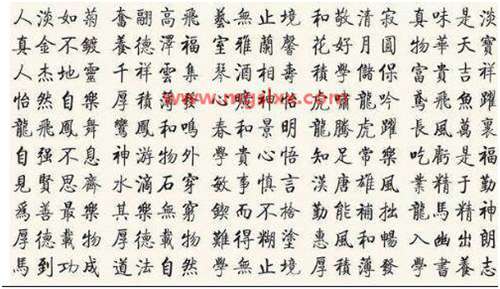 人淡如菊 奮翮高飛 藝無止境 和敬清寂 真味是淡
真金不鍍 養德澤福 室雅蘭馨 花好月圓 物華天寶
人杰地靈 千祥雲集 琴酒相壽 積學儲保 富貴吉祥
www.mgslxs.com
怡然自樂 厚積薄發 心曠神怡 龍吟 鳶飛魚躍
龍飛鳳舞 鸞鳳和鳴 春和景明 龍騰虎躍 長風萬裏
自强不息 神游物外 學貴心悟 知足常樂 吃虧是福
見賢思齊 水滴石穿 敏事慎言 漢唐雄風 業精于勤
爲善最樂 其樂無窮 鍥而不捨 勤能補拙 龍馬精神
厚德載物 厚德載物 難得糊塗 惠風和暢 入幽出朗
馬到功成 道法自然 學無止境 厚積薄發 學書養志